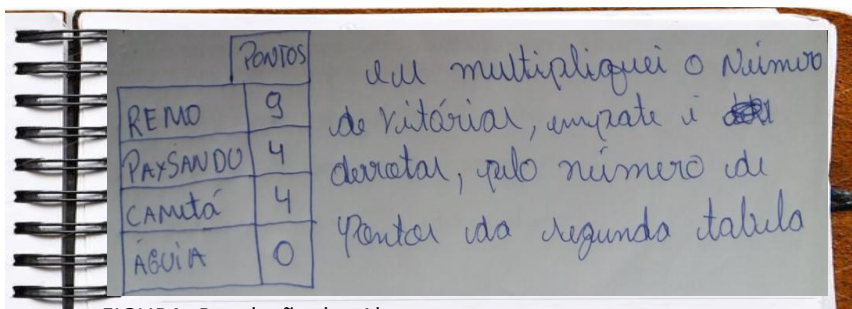 PONTOS
REMO 9
PAYSANDO 4
CAMETÁ 4
ÁGUIA 0
eu multipliquei o Número
de Vitórias, empate i
derrotas, pelo número de
Pontos da segunda tabela